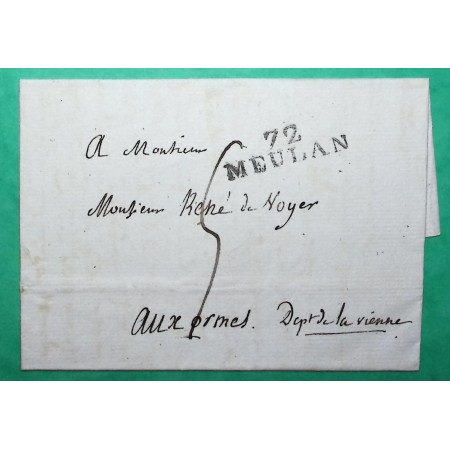 A Monsieur
72
MEULAN
Monsieur René de Voyer
5
aux ormes. Dept de la vienne